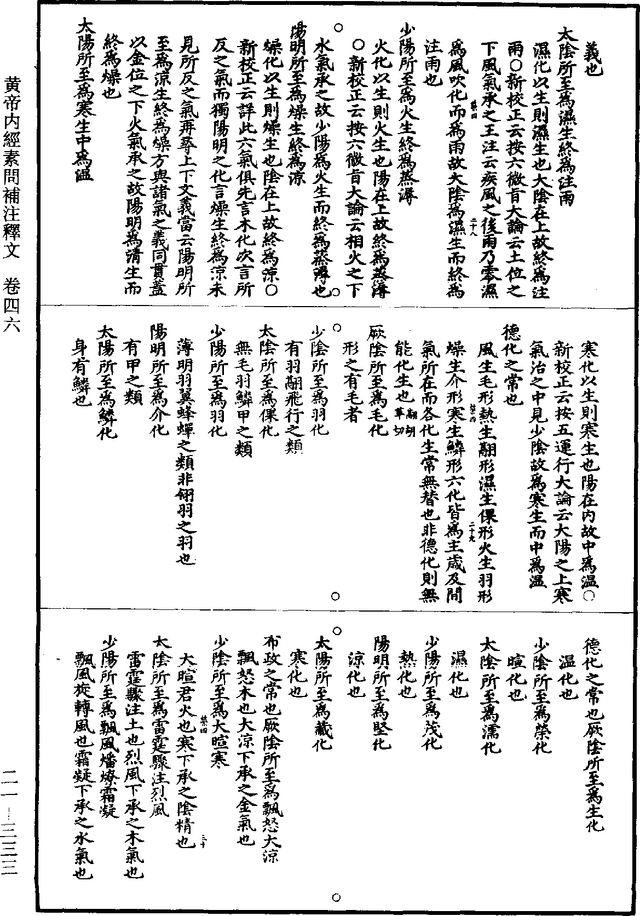 黄帝内經素問補注釋文　卷四六
二一—三三三
義也
太陰所至爲濕生終爲注雨
濕化以生則濕生也太陰在上故終爲注
雨○新校正云按六微旨大論云土位之
下風氣承之王注云疾風之後雨乃零濕
爲風吹化而爲雨故太陰爲濕生而終爲
注雨也
少陽所至爲火生終爲蒸溽
火化以生則火生也陽在上故終爲蒸溽
○新校正云按六微旨大論云相火之下
水氣承之故少陽爲火生而終爲蒸溽也
陽明所至爲燥生終爲涼
燥化以生則燥生也陰在上故終爲涼○
新校正云詳此六氣俱先言本化次言所
反之氣而獨陽明之化言燥生終爲涼未
見所反之氣再尋上下文義當云陽明所
至爲涼生終爲燥方與諸氣之義同貫蓋
以金位之下火氣承之故陽明爲清生而
終爲燥也
太陽所至爲寒生中爲温
寒化以生則寒生也陽在内故中爲温○
新校正云按五運行大論云太陽之上寒
氣治之中見少陰故爲寒生而中爲温
德化之常也
風生毛形熱生翮形濕生倮形火生羽形
燥生介形寒生鱗形六化皆爲主歲及間
氣所在而各化生常無替也非德化則無
能化生也
厥陰所至爲毛化
形之有毛者
少陰所至爲羽化
有羽翮飛行之類
太陰所至爲倮化
無毛羽鱗甲之類
少陽所至爲羽化
薄明羽翼蜂蟬之類非翎羽之羽也
陽明所至爲介化
有甲之類
太陽所至爲鱗化
身有鱗也
德化之常也厥陰所至爲生化
温化也
少陰所至爲榮化
暄化也
太陰所至爲濡化
濕化也
少陽所至爲茂化
熱化也
陽明所至爲堅化
涼化也
太陽所至爲藏化
寒化也
布政之常也厥陰所至爲飄怒大涼
飄怒木也大涼下承之金氣也
少陰所至爲大暄寒
大暄君火也寒下承之陰精也
太陰所至爲雷霆驟注烈風
雷霆驟注土也烈風下承之木氣也
少陽所至爲飄風燔燎霜凝
飄風旋轉風也霜凝下承之水氣也